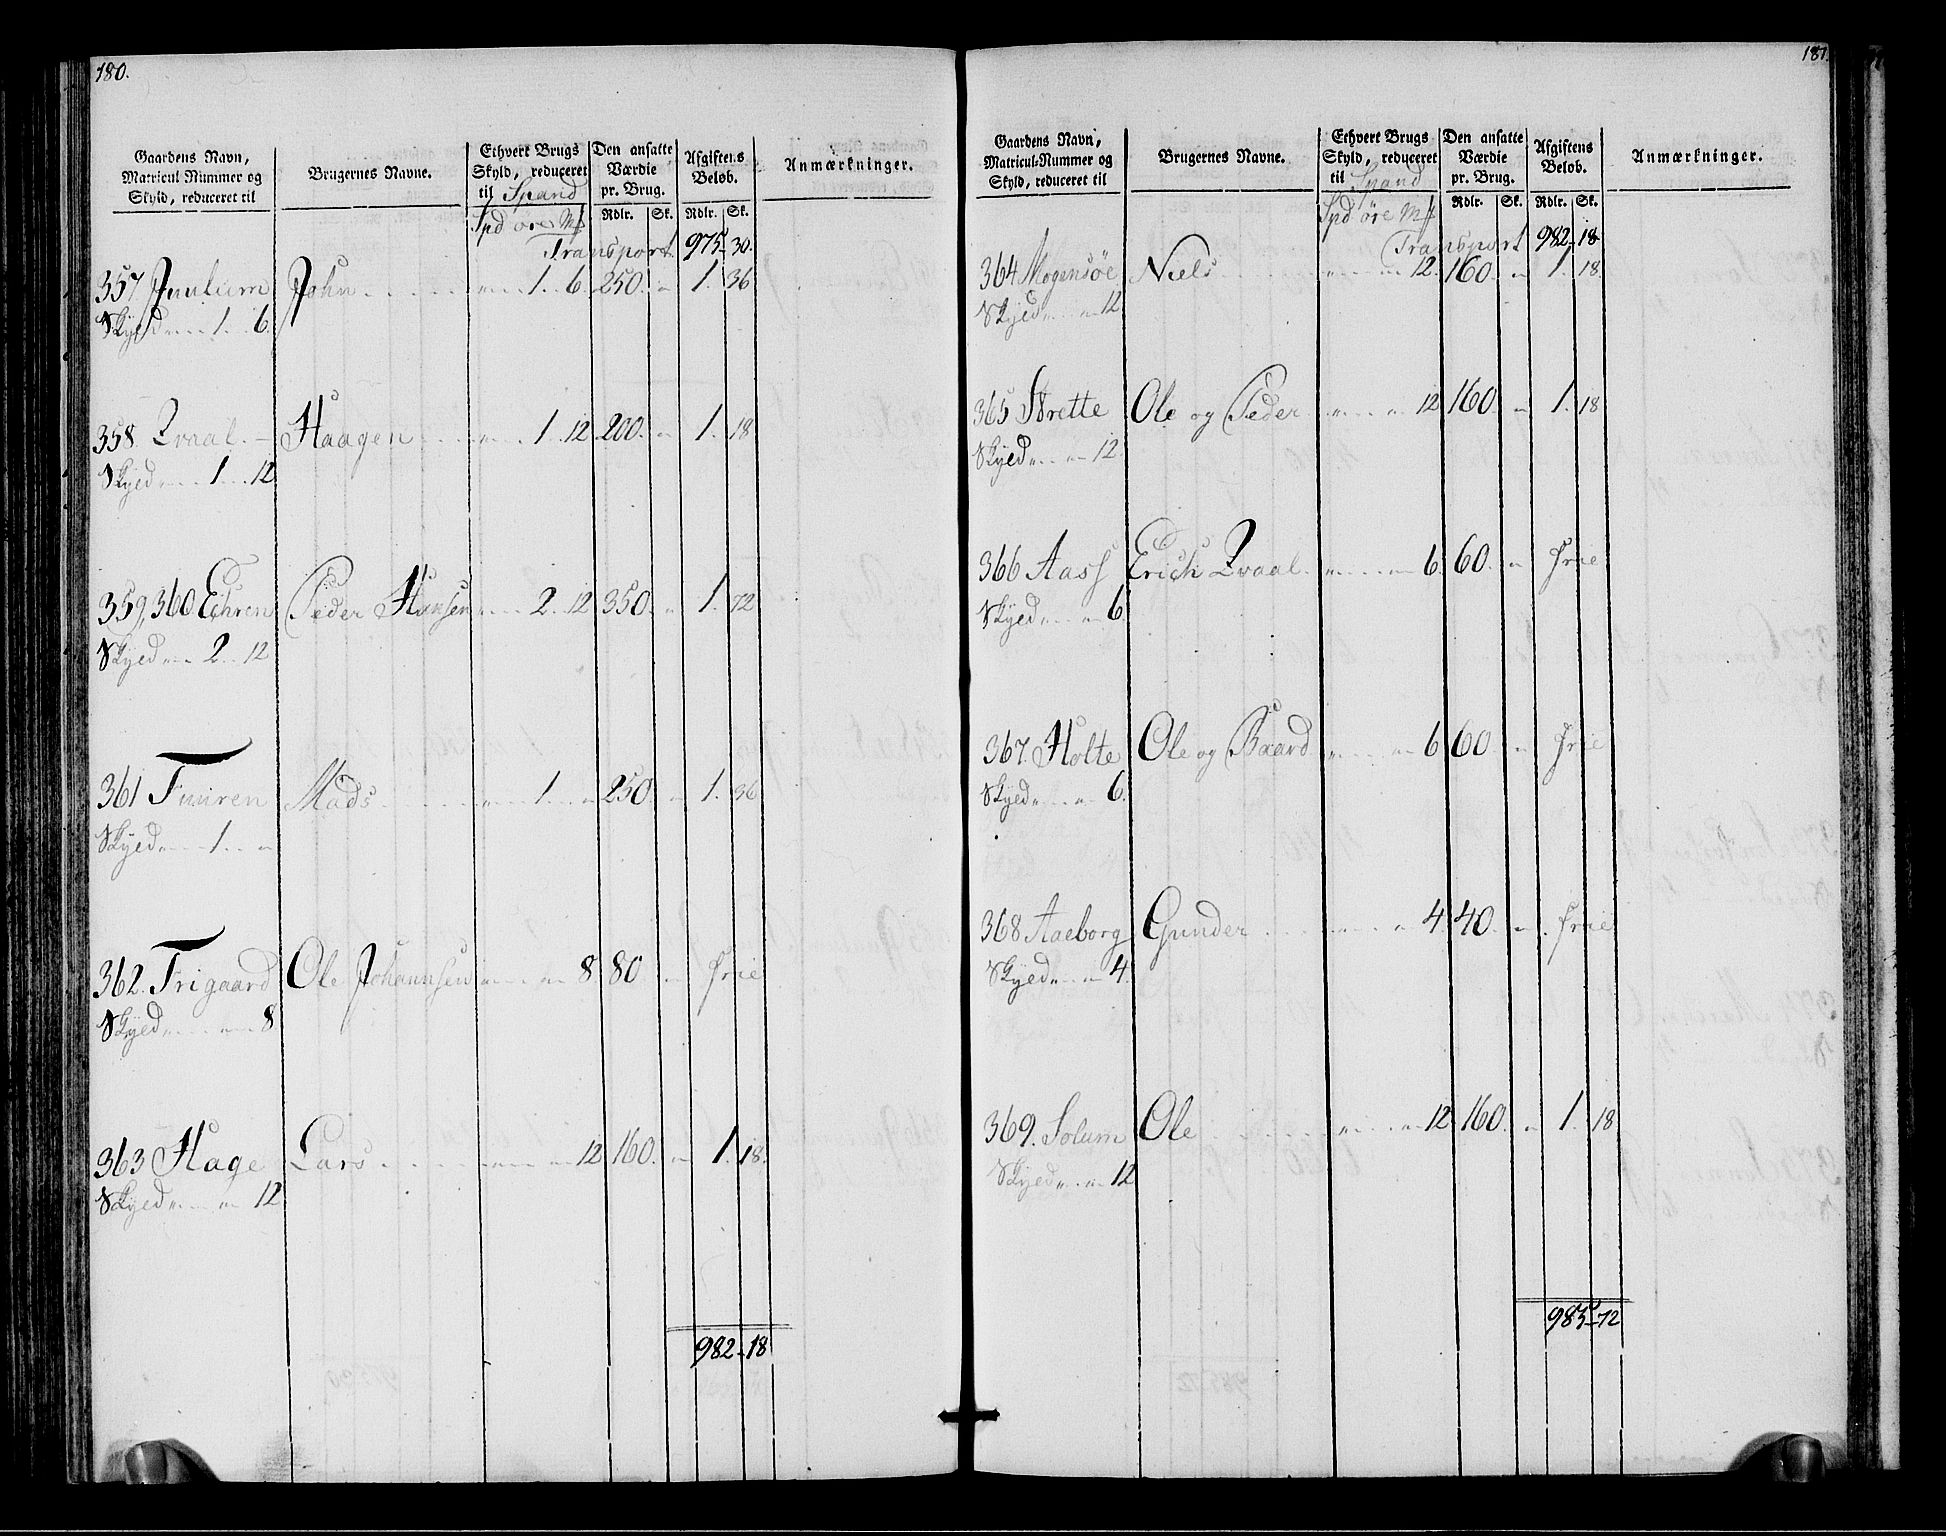 180.
Gaardens Navn, Matricul Nummer og Skyld, reduceret til | Brugernes Navne. | Ethvert Brugs Skyld, reduceret til Spand | Den ansatte Værdie pr. Brug. | Afgiftens Beløb. | Anmærkninger.
Spd øre Mſ | Rdlr. | Sk. | Rdlr. | Sk.
Transport 975 - 30.
357 John . . . . . " . . " . 1 . 6. 250. " 1. 36
Skyld . . . . 1 . . 6.
358. Qvaal. - Haagen . . . . . " . . 1 . 12 200. " 1. 18
Skyld . . . . 1 . . . 12
359, 360. Peder Hansen " . . . 2 . . 12 350. " 1. 72
Skyld . . . 2 . . 12
361 Mads . . . . . . . " . . 1 . . . " 250. " 1. 36
Skyld . . . . 1 . . "
362. Trigaard Ole Johannsen " . . . " . 8 80 " frie
Skyld . . . . . " . . 8
363 Hage Lars . . . . . . " . . . " 12 160. " 1. 18.
Skyld . . . . " 12
982 - 18
181.
Gaardens Navn, Matricul-Nummer og Skyld, reduceret til | Brugernes Navne. | Ethvert Brugs Skyld, reduceret til Spand | Den ansatte Værdie pr. Brug. | Afgiftens Beløb. | Anmærkninger.
Spd øre Mſ | Rdlr. | Sk. | Rdlr. | Sk.
Transport 982 - 18
364 Mogensøe Niels . . . . . . " . . . " 12. 160. " 1. 18.
Skyld . . . " 12
365 Ole og Peder . " . . . " 12 160. " 1. 18
Skyld . . . " 12
366 Aass Erich Qvaal . " . . . " 6. 60. " frie
Skyld . . . " 6.
367. Holte Ole og Baard . " . . . " 6. 60. " frie
Skyld . . . " 6.
368 Aaeborg Gunder . . . . " . . . " 4. 40. " frie
Skyld . . . " 4.
369. Solum Ole . . . . . . . " . . . " 12 160. " 1. 18
Skyld . . . " 12
985 - 72